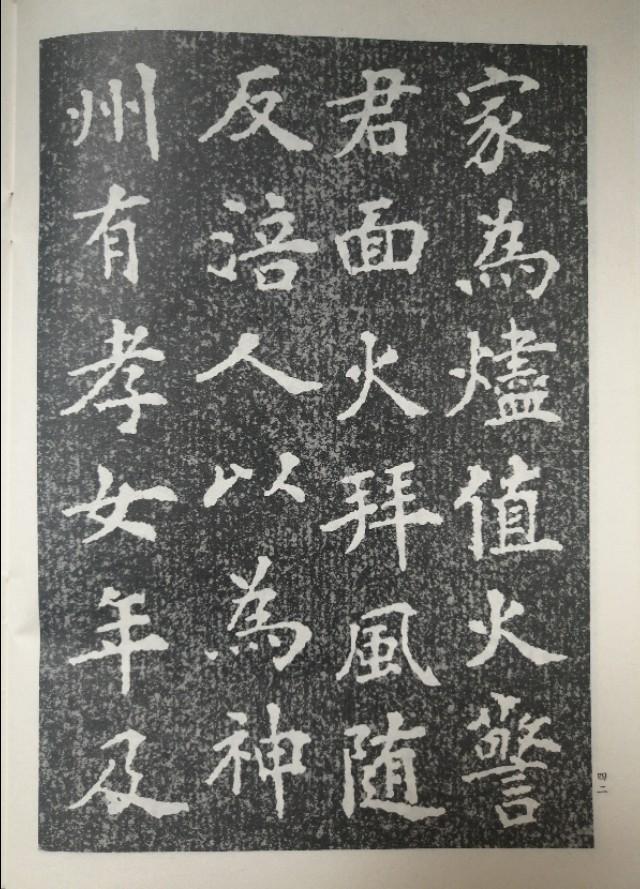 家為燼值火警
君面火拜風随
反涪人以為神
州有孝女年及
四二